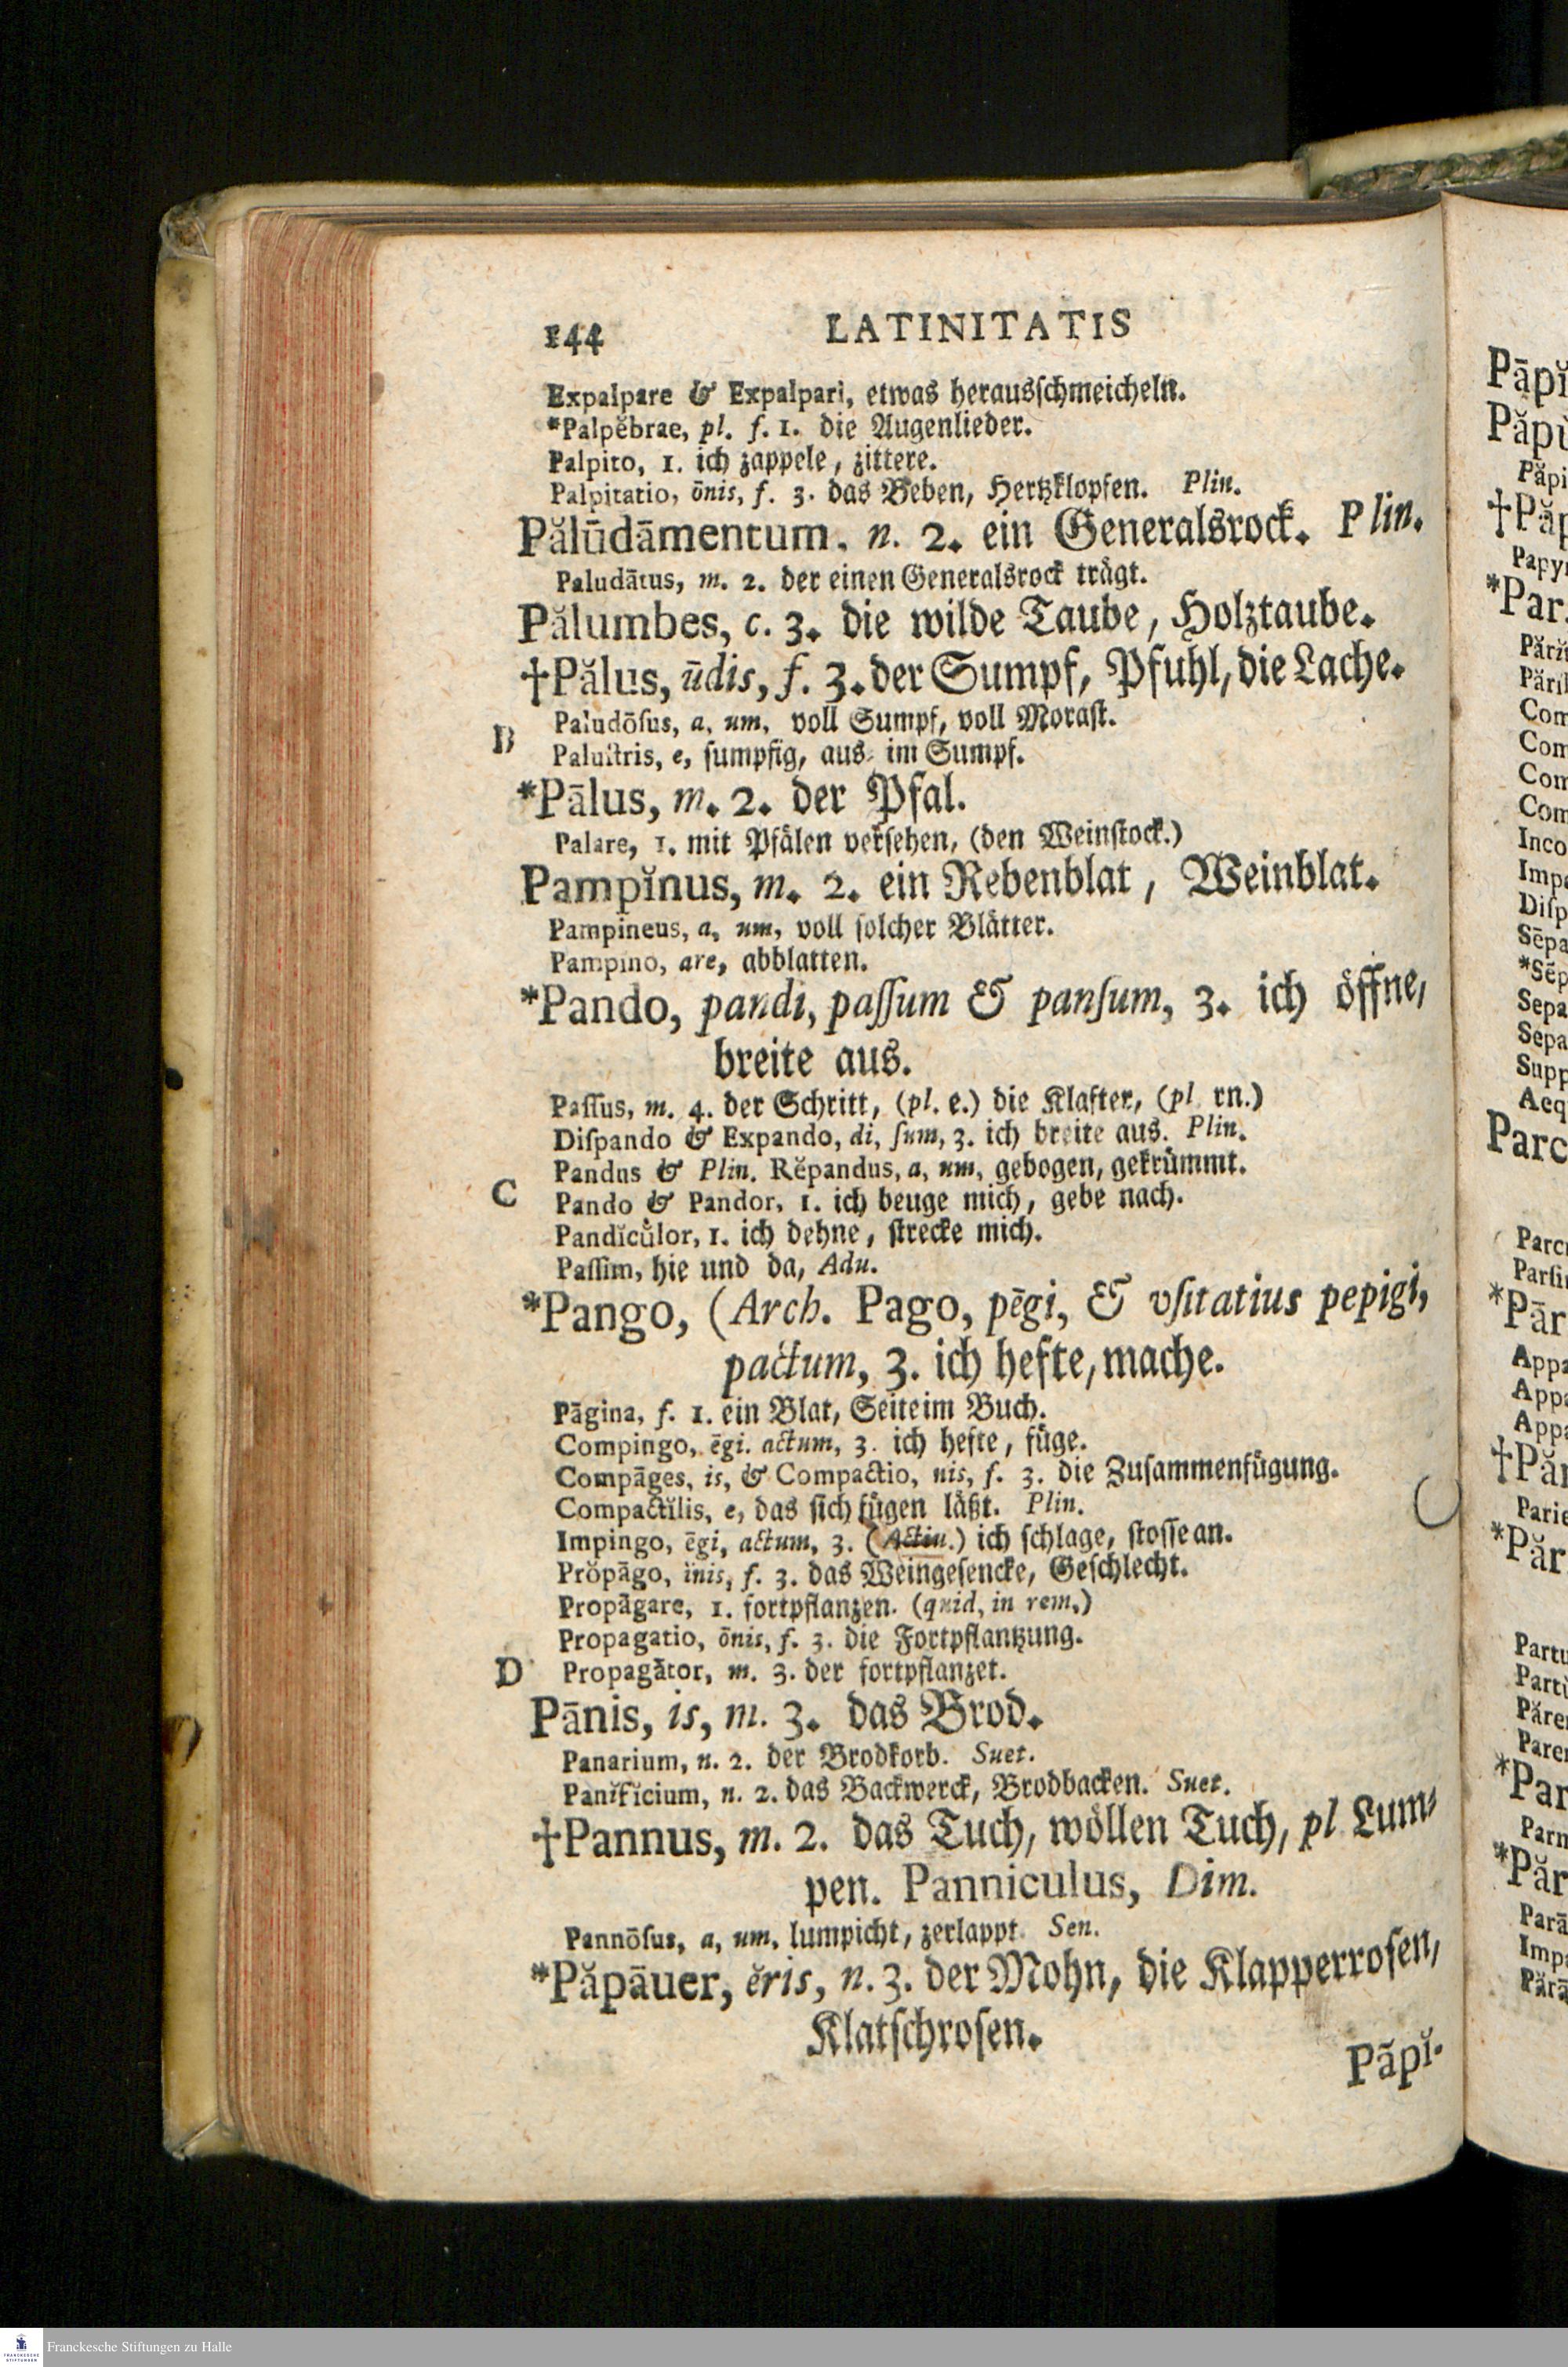 144 LATINITATIS
Expalpare & Expalpari, etwas herausſchmeicheln.
*Palpĕbrae, pl. f. 1. die Augenlieder.
Palpito, 1. ich zappele, zittere.
Palpitatio, ōnis, f. 3. das Beben, Hertzklopfen. Plin.
Pălūdāmentum, n. 2. ein Generalsrock. Plin.
Paludātus, m. 2. der einen Generalsrock trägt.
Pălumbes, c. 3. die wilde Taube, Holztaube.
†Pălus, ūdis, f. 3. der Sumpf, Pfuhl, die Lache.
Paludōſus, a, um, voll Sumpf, voll Moraſt.
B Paluſtris, e, ſumpfig, aus- im Sumpf.
*Pālus, m. 2. der Pfal.
Palare, 1. mit Pfälen verſehen, (den Weinſtock.)
Pampĭnus, m. 2. ein Rebenblat, Weinblat.
Pampineus, a, um, voll ſolcher Blätter.
Pampino, are, abblatten.
*Pando, pandi, paſſum & panſum, 3. ich öffne,
breite aus.
Paſſus, m. 4. der Schritt, (pl. e.) die Klafter, (pl rn.)
Diſpando & Expando, di, ſum, 3. ich breite aus. Plin.
Pandus & Plin. Rĕpandus, a, um, gebogen, gekrümmt.
C Pando & Pandor, 1. ich beuge mich, gebe nach.
Pandĭcŭlor, 1. ich dehne, ſtrecke mich.
Paſſim, hie und da, Adu.
*Pango, (Arch. Pago, pēgi, & vſitatius pepigi,
pactum, 3. ich hefte, mache.
Pāgina, f. 1. ein Blat, Seite im Buch.
Compingo, ēgi. actum, 3. ich hefte, füge.
Compāges, is, & Compactio, nis, f. 3. die Zuſammenfügung.
Compactĭlis, e, das ſich fügen läßt. Plin.
Impingo, ēgi, actum, 3. (Actiu.) ich ſchlage, ſtoſſe an.
Prŏpāgo, ĭnis, f. 3. das Weingeſencke, Geſchlecht.
Propāgare, 1. fortpflanzen. (quid, in rem.)
Propagatio, ōnis, f. 3. die Fortpflantzung.
D Propagātor, m. 3. der fortpflanzet.
Pānis, is, m. 3. das Brod.
Panarium, n. 2. der Brodkorb. Suet.
Panĭfĭcium, n. 2. das Backwerck, Brodbacken. Suet.
†Pannus, m. 2. das Tuch, wöllen Tuch, pl Lum-
pen. Panniculus, Dim.
Pannōſus, a, um, lumpicht, zerlappt. Sen.
*Păpāuer, ĕris, n. 3. der Mohn, die Klapperroſen,
Klatſchroſen.
Păpĭ-
Franckesche Stiftungen zu Halle